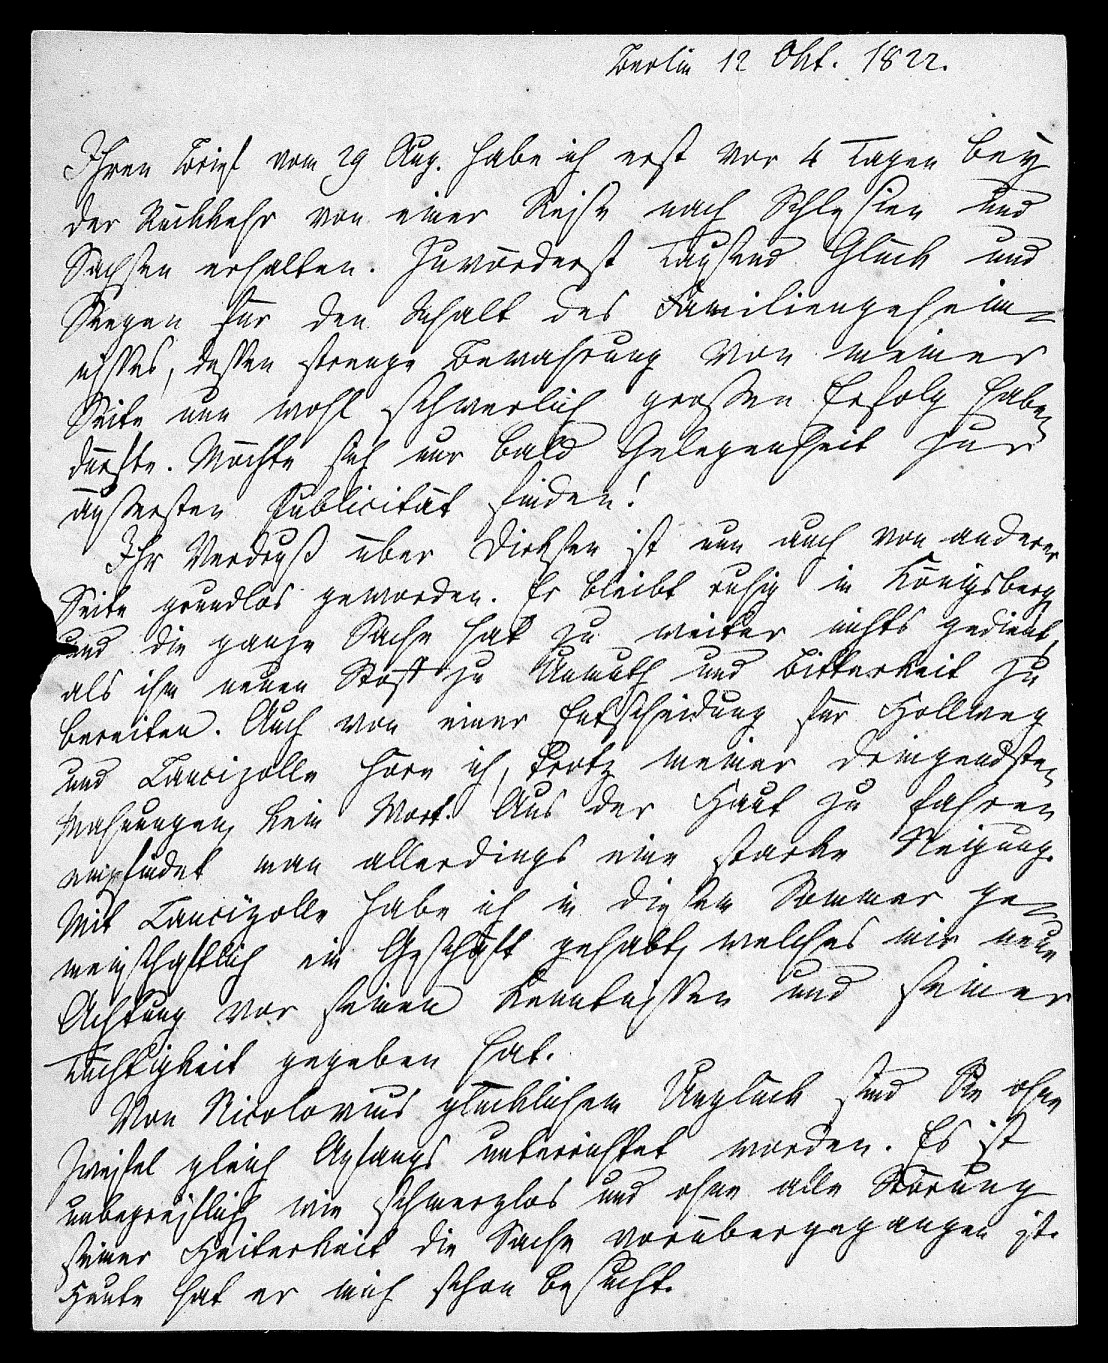 Berlin 12 Okt. 1822.
Ihren Brief vom 29 Aug. habe ich erst vor 4 Tagen bey
der Rückkehr von einer Reise nach Schlesien und
Sachsen erhalten. Zuvörderst tausend Glück und
Seegen für den Inhalt des Familiengeheim-
nisses, dessen strenge Bewahrung von meiner
Seite nun wohl schwerlich großen Erfolg haben
dürfte. Möchte sich nur bald Gelegenheit zur
äußersten Publicität finden!
Ihr Verdruß über Dirksen ist nun auch von anderer
Seite grundlos geworden. Er bleibt ruhig in Königsberg
und die ganze Sache hat zu weiter nichts gedient,
als ihm neuen Stoff zu Unmuth und Bitterkeit zu
bereiten. Auch von einer Entscheidung für Hollweg
und Lancizolle höre ich, trotz meiner dringendsten
Mahnungen, kein Wort. Aus der Haut zu fahren
empfindet man allerdings eine starke Neigung.
Mit Lancizolle habe ich in diesem Sommer ge-
meinschaftlich ein Geschäft gehabt, welches mir neue
Achtung vor seinen Kenntnissen und seiner
Tüchtigkeit gegeben hat.
Von Nicolovius glücklichem Unglück sind Sie ohne
Zweifel gleich Anfangs unterrichtet worden. Es ist
unbegreiflich, wie schmerzlos und ohne alle Störung
seiner Heiterkeit die Sache vorübergegangen ist.
Heute hat er mich schon besucht.